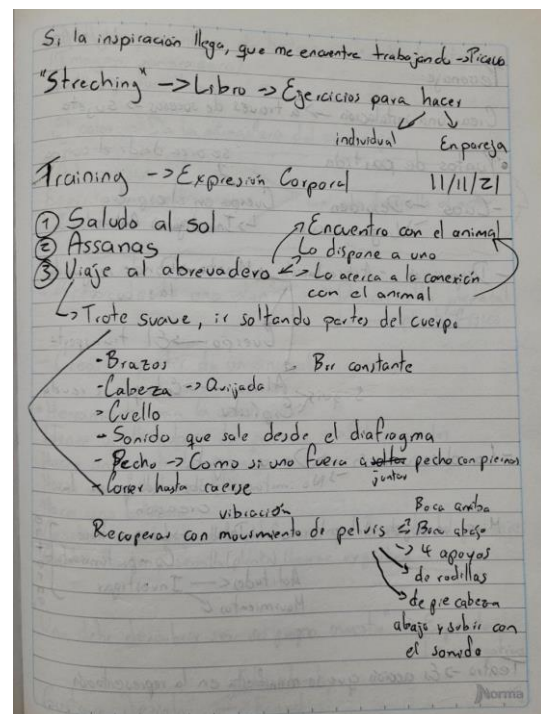 Si la inspiración llega, que me encuentre trabajando → Picasso
"Streching" → Libro → Ejercicios para hacer
individual En pareja
Training → Expresión Corporal 11/11/21
① Saludo al sol → Encuentro con el animal
② Assanas Lo dispone a uno
③ Viaje al abrevadero → Lo acerca a la conexión
con el animal
→ Trote suave, ir soltando partes del cuerpo
- Brazos Brr constante
- Cabeza → Quijada
> Cuello
- Sonido que sale desde el diafragma
- Pecho → Como si uno fuera a juntar pecho con piernas
- Correr hasta caerse
vibración Boca arriba
Recuperar con movimiento de pelvis Boca abajo
→ 4 apoyos
→ de rodillas
→ de pie cabeza
abajo y subir con
el sonido
Norma